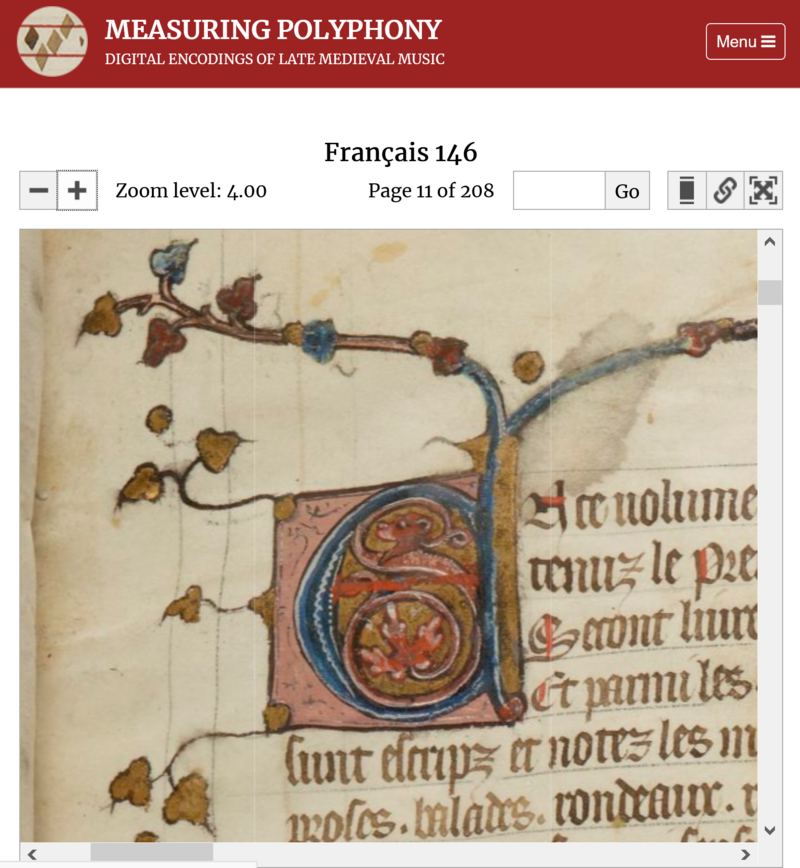 MEASURING POLYPHONY
DIGITAL ENCODINGS OF LATE MEDIEVAL MUSIC
Menu
Français 146
Zoom level: 4.00
Page 11 of 208
Go
EN ce uolume
tenuz le pre
Secont liure
Et parmi les
sunt escripz et notez les m
proses. balades. rondeaux. r